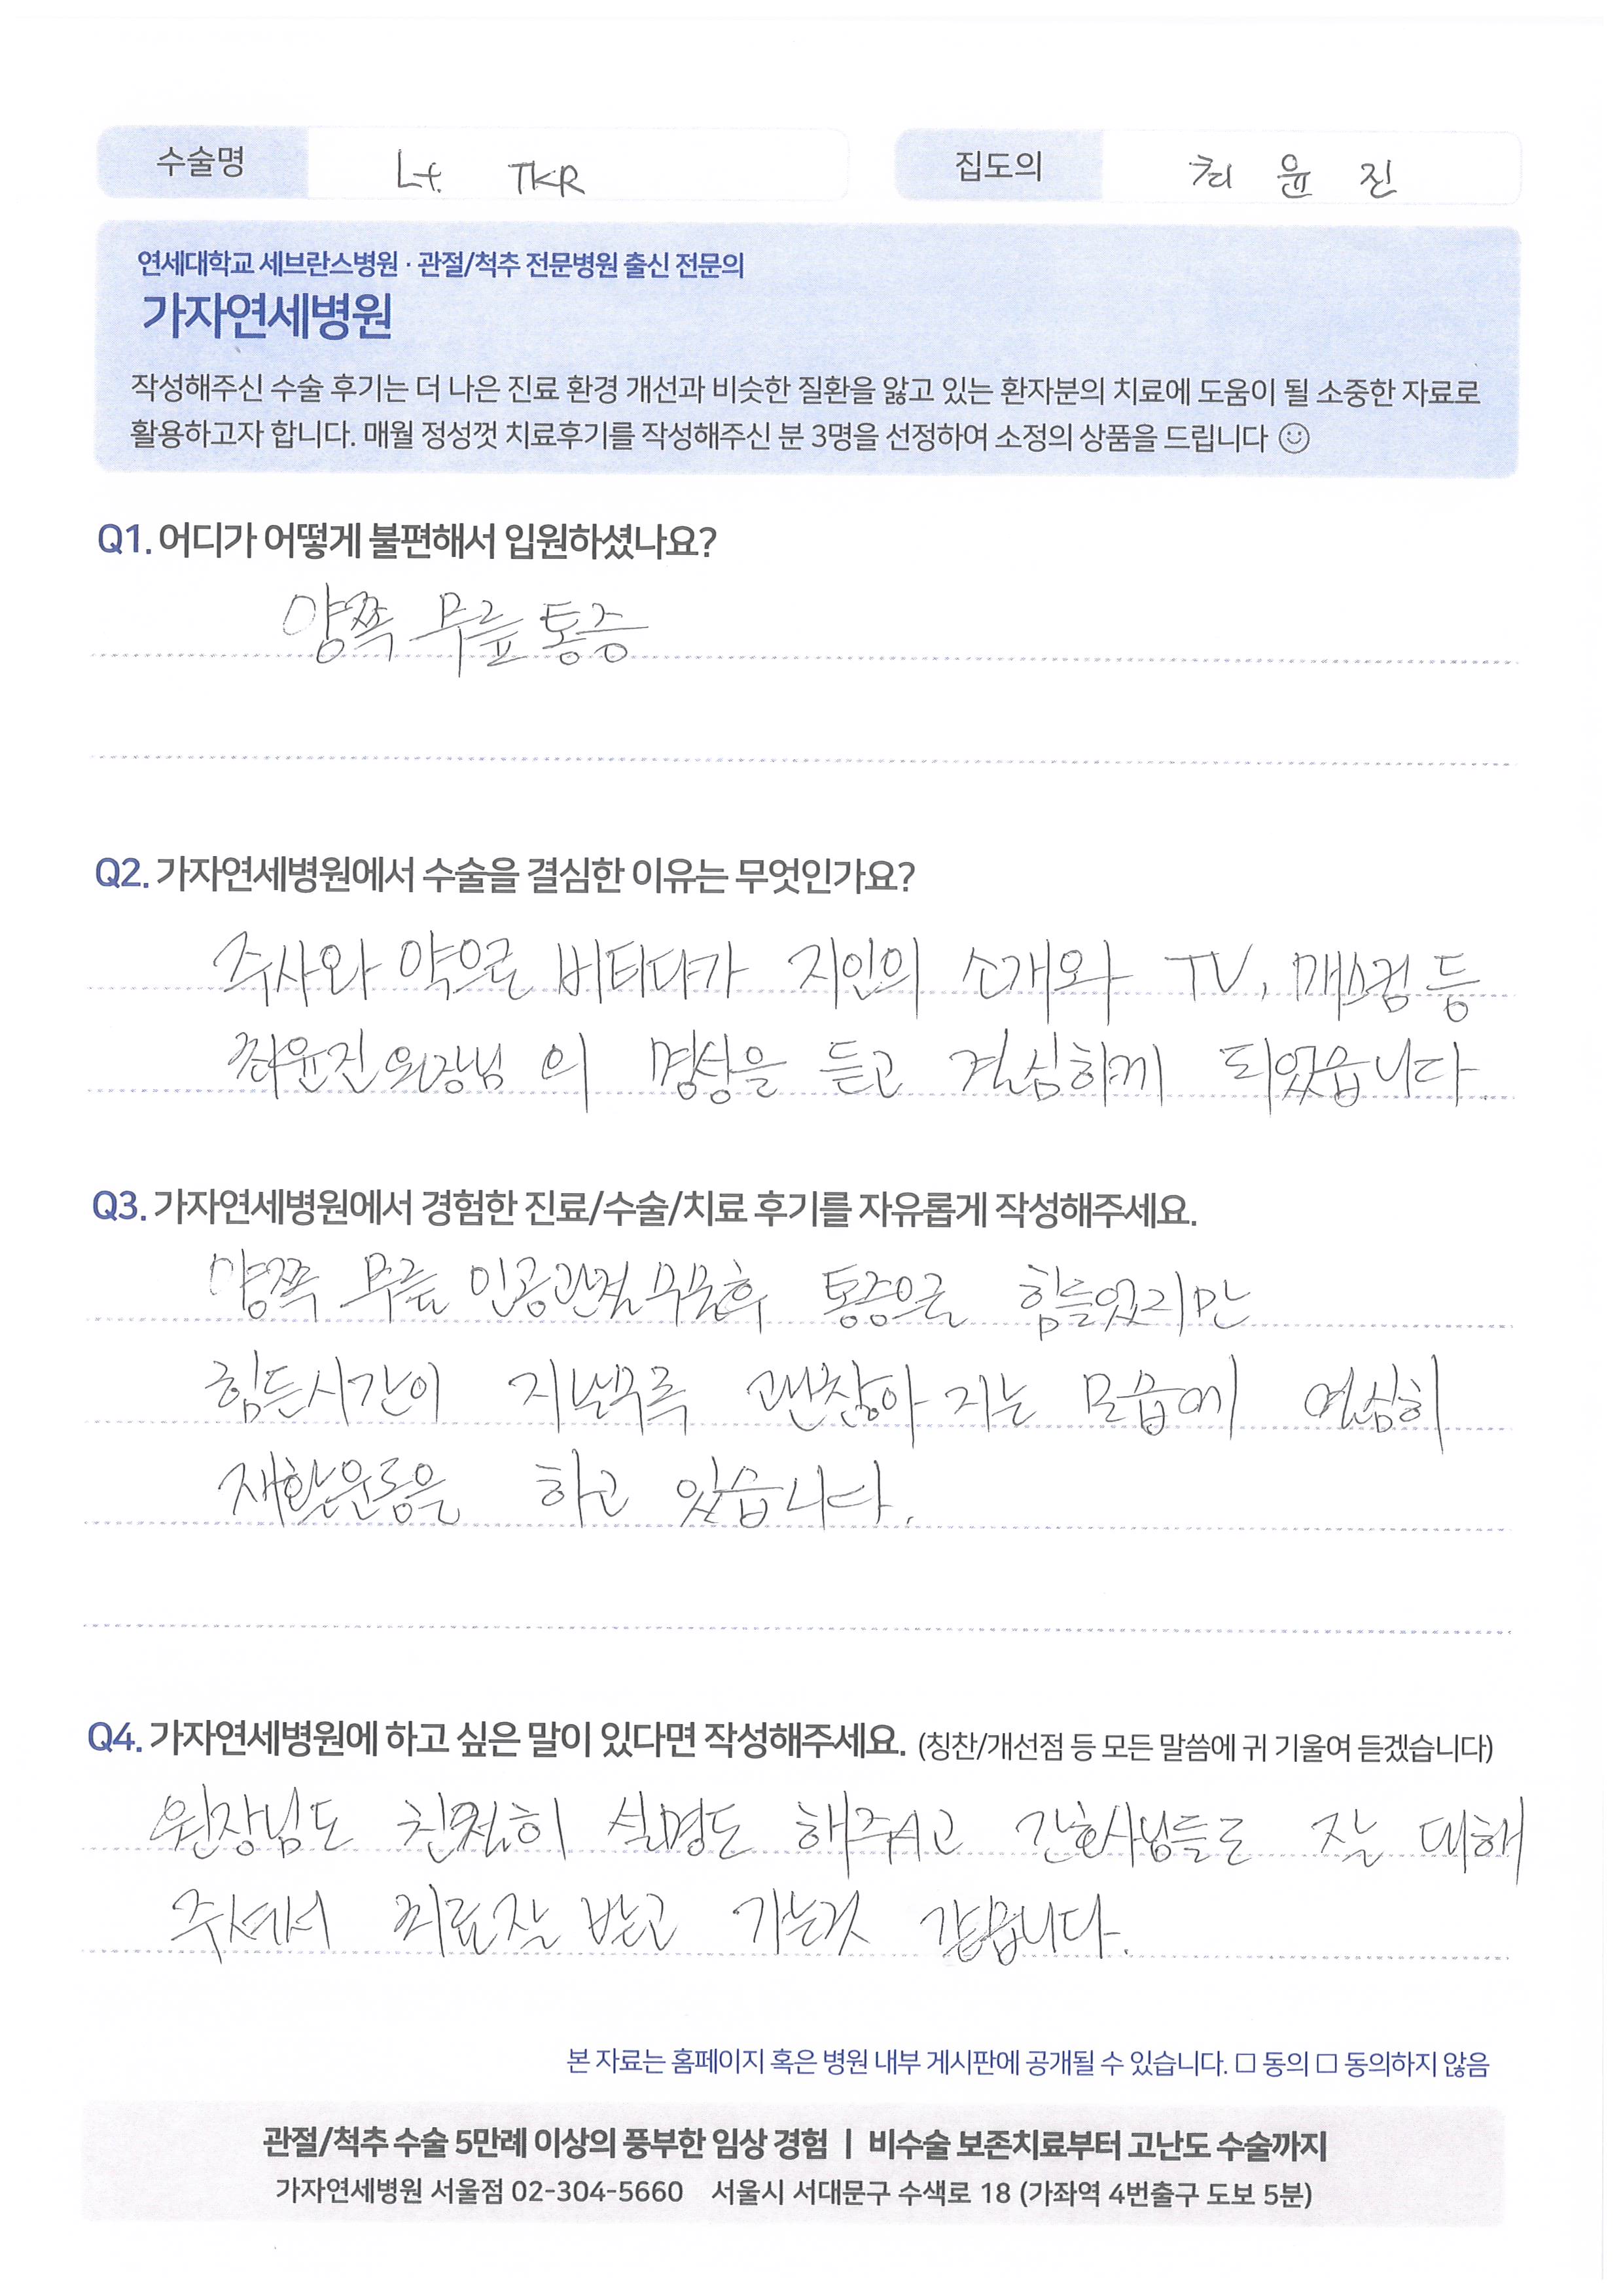 수술명 Lt. TKR 집도의 최윤진
연세대학교 세브란스병원 · 관절/척추 전문병원 출신 전문의
가자연세병원
작성해주신 수술 후기는 더 나은 진료 환경 개선과 비슷한 질환을 앓고 있는 환자분의 치료에 도움이 될 소중한 자료로
활용하고자 합니다. 매월 정성껏 치료후기를 작성해주신 분 3명을 선정하여 소정의 상품을 드립니다 ☺
Q1. 어디가 어떻게 불편해서 입원하셨나요?
양쪽 무릎 통증
Q2. 가자연세병원에서 수술을 결심한 이유는 무엇인가요?
주사와 약으로 버티다가 지인의 소개와 TV, 매스컴 등
최윤진 원장님 의 명성을 듣고 결심하게 되었습니다.
Q3. 가자연세병원에서 경험한 진료/수술/치료 후기를 자유롭게 작성해주세요.
양쪽 무릎 인공관절 수술후 통증으로 힘들었지만
힘든시간이 지날수록 괜찮아 지는 모습에 열심히
재활운동을 하고 있습니다.
Q4. 가자연세병원에 하고 싶은 말이 있다면 작성해주세요. (칭찬/개선점 등 모든 말씀에 귀 기울여 듣겠습니다)
원장님도 친절히 설명도 해주시고 간호사님들도 잘 대해
주셔서 치료잘 받고 가는것 같습니다.
본 자료는 홈페이지 혹은 병원 내부 게시판에 공개될 수 있습니다. □ 동의 □ 동의하지 않음
관절/척추 수술 5만례 이상의 풍부한 임상 경험 | 비수술 보존치료부터 고난도 수술까지
가자연세병원 서울점 02-304-5660 서울시 서대문구 수색로 18 (가좌역 4번출구 도보 5분)